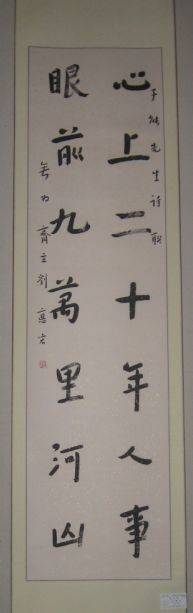 心上二十年人事
眼前九萬里河山
先生詩